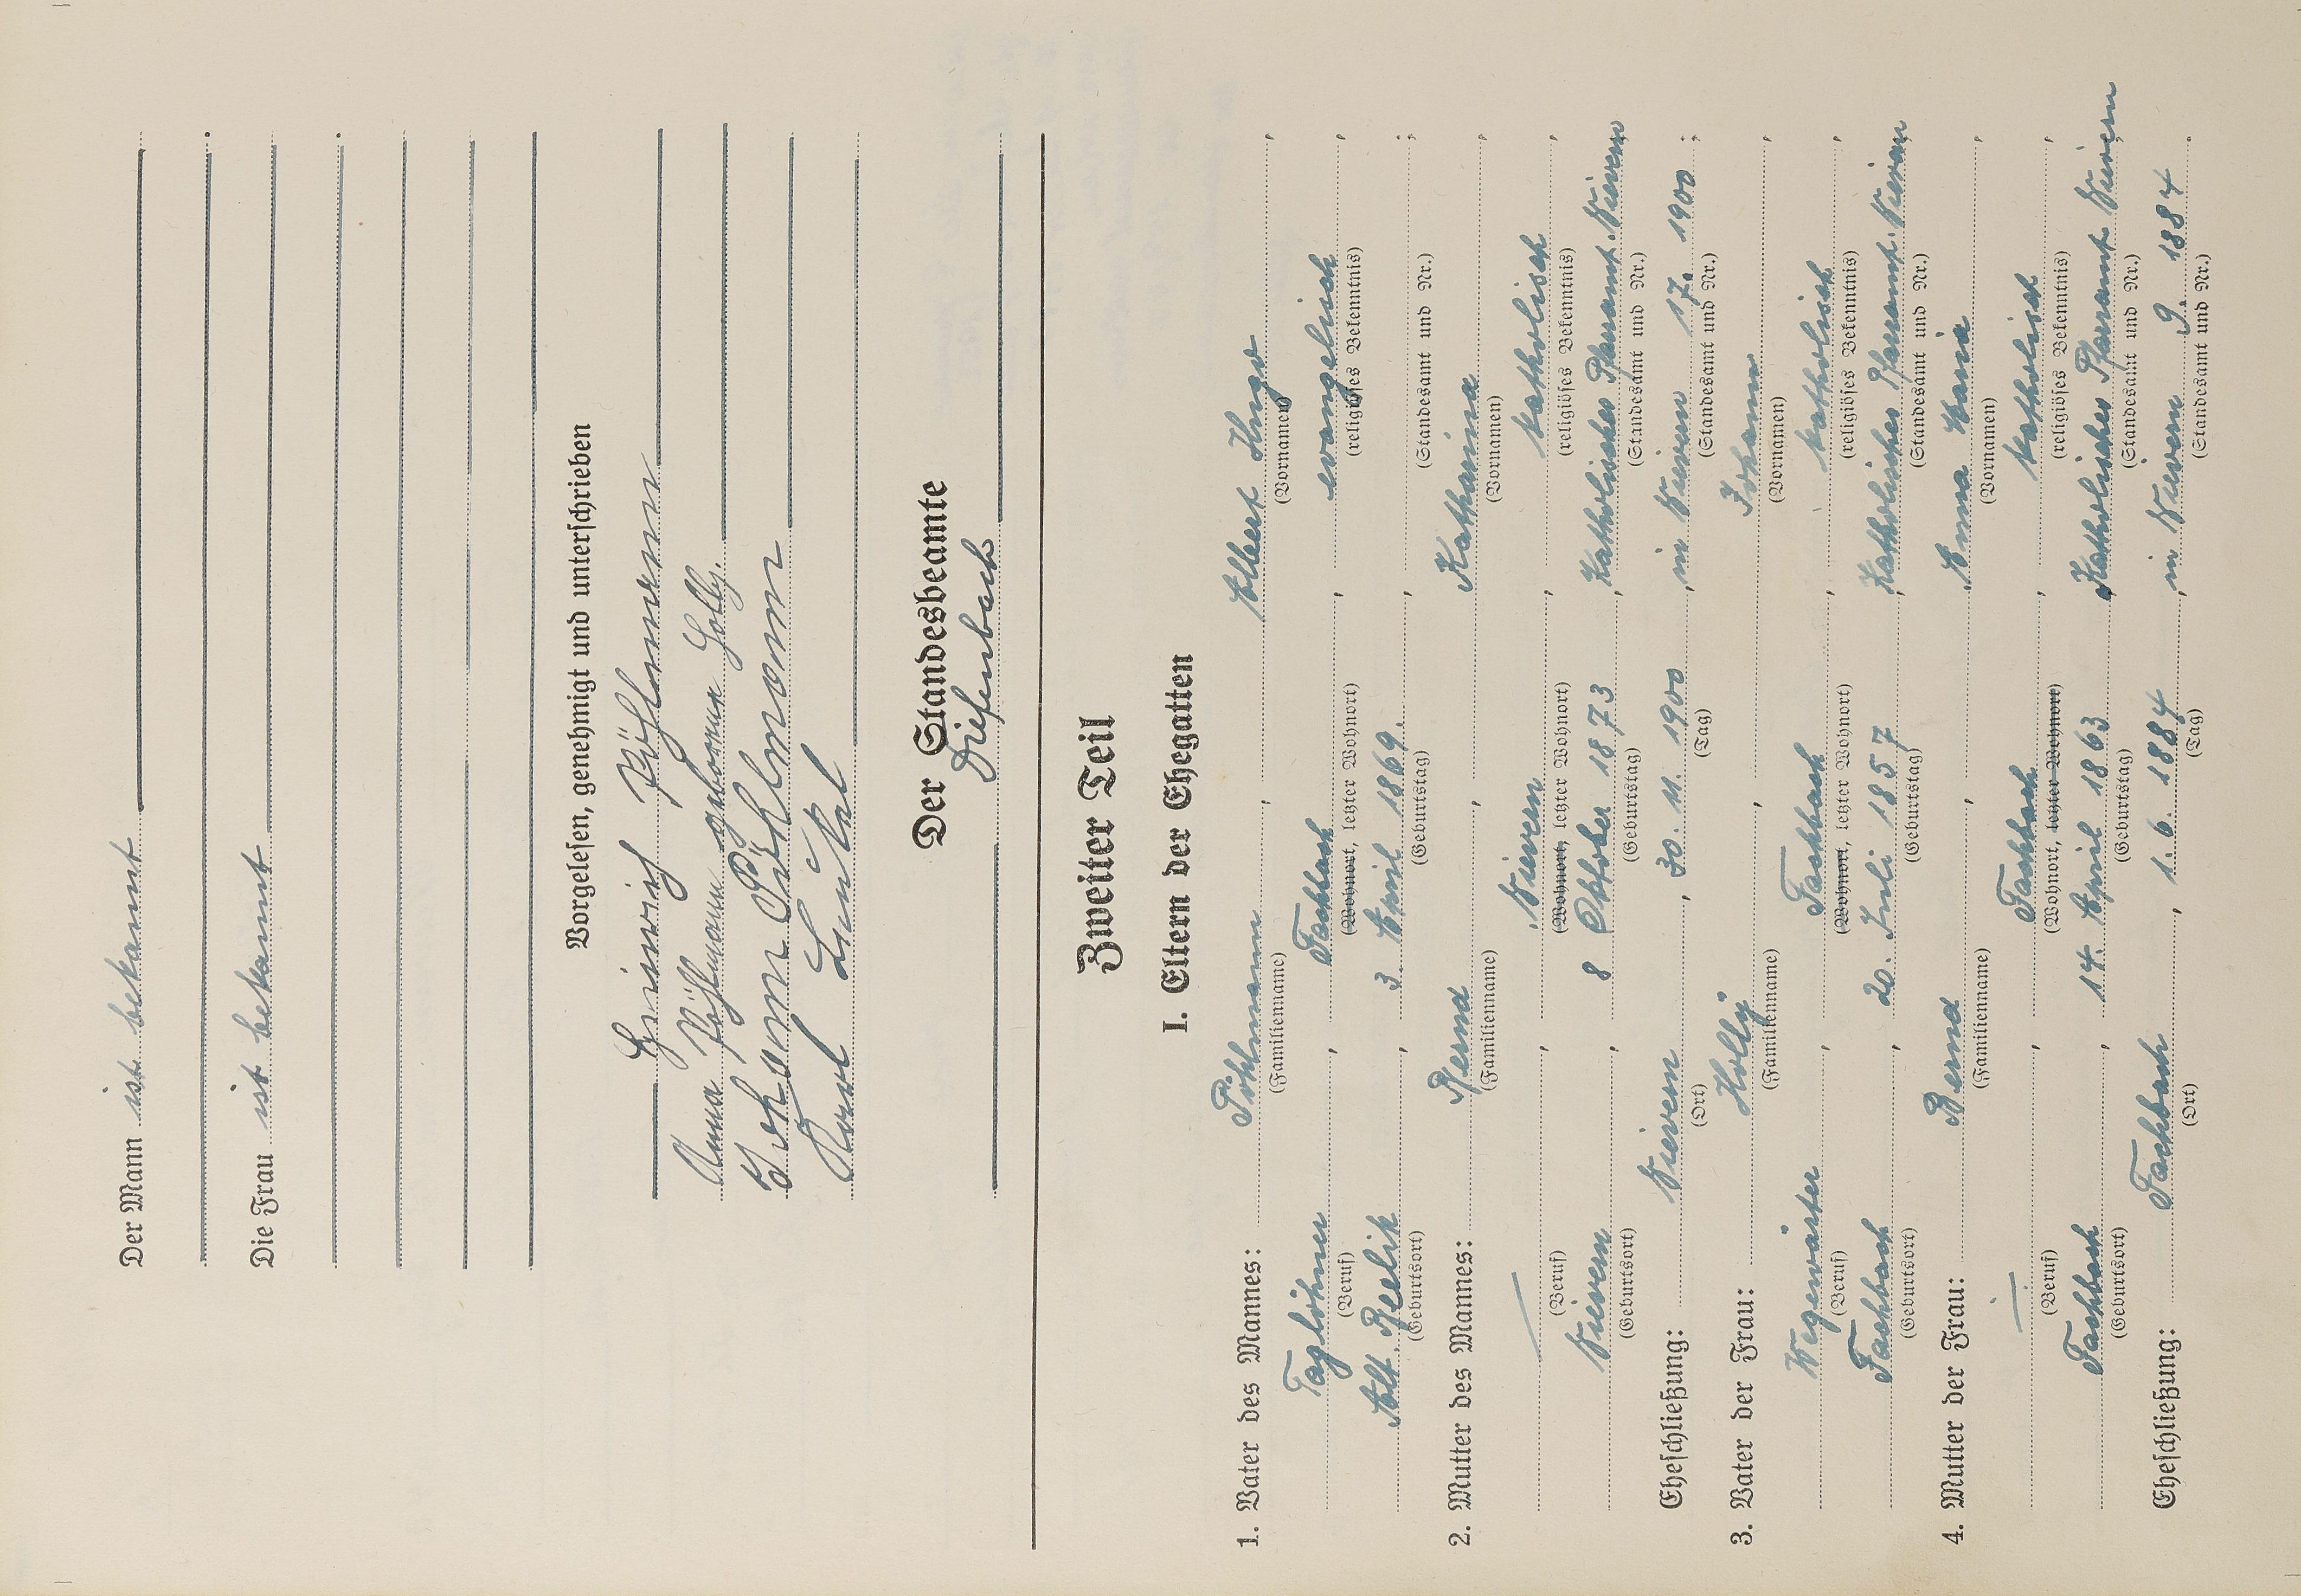 Der Mann ist bekannt
Die Frau ist bekannt
Vorgelesen, genehmigt und unterschrieben
Heinrich Pöhlmann
Anna Pöhlmann geborene Holly.
Johann Pöhlmann
Karl
Der Standesbeamte
Diefenbach
Zweiter Teil
I. Eltern der Ehegatten
1. Vater des Mannes: Pöhlmann, Albert Hugo,
(Familienname) (Vornamen)
Taglöhner, Fachbach, evangelisch,
(Beruf) (Wohnort, letzter Wohnort) (religiöses Bekenntnis)
Alt, 3. April 1869.,;
(Geburtsort) (Geburtstag) (Standesamt und Nr.)
2. Mutter des Mannes: Bernd, Katharina,
(Familienname) (Vornamen)
—, Nievern, katholisch,
(Beruf) (Wohnort, letzter Wohnort) (religiöses Bekenntnis)
Nievern, 8 Oktober 1873, Katholisches Pfarramt. Nievern;
(Geburtsort) (Geburtstag) (Standesamt und Nr.)
Eheschließung: Nievern, 30. 11. 1900, in Nievern 17. 1900;
(Ort) (Tag) (Standesamt und Nr.)
3. Vater der Frau: Holly, Johann,
(Familienname) (Vornamen)
Wegewärter, Fachbach, katholisch,
(Beruf) (Wohnort, letzter Wohnort) (religiöses Bekenntnis)
Fachbach, 20. Juli 1857, Katholisches Pfarramt. Nievern,
(Geburtsort) (Geburtstag) (Standesamt und Nr.)
4. Mutter der Frau: Bernd, Anna Maria,
(Familienname) (Vornamen)
—, Fachbach, katholisch,
(Beruf) (Wohnort, letzter Wohnort) (religiöses Bekenntnis)
Fachbach, 14. April 1863, Katholisches Pfarramt Nievern;
(Geburtsort) (Geburtstag) (Standesamt und Nr.)
Eheschließung: Fachbach, 1. 6. 1884, in Nievern 9. 1884.
(Ort) (Tag) (Standesamt und Nr.)